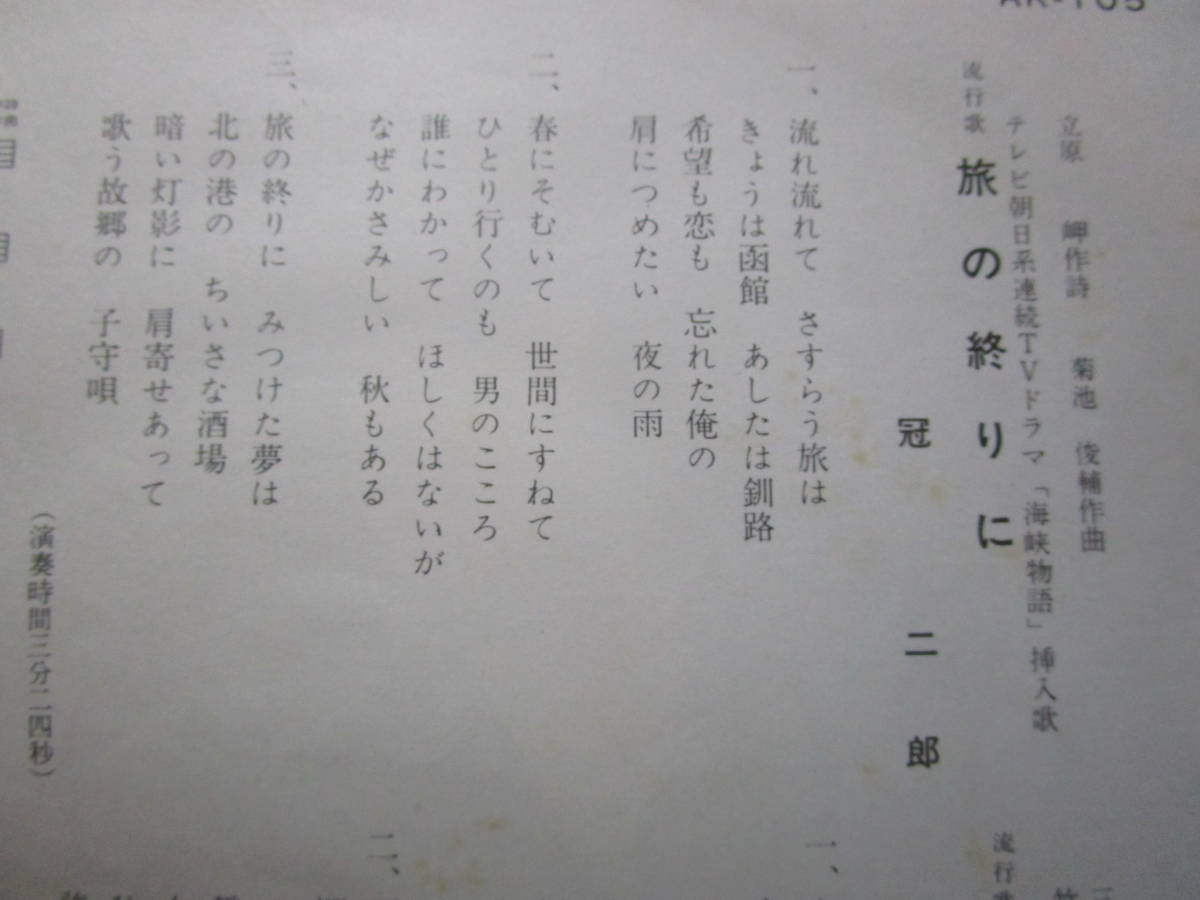 立原 岬作詩 菊池 俊輔作曲
テレビ朝日系連続TVドラマ「海峡物語」挿入歌
流行歌 旅の終りに
冠 二郎
一、流れ流れて さすらう旅は
きょうは函館 あしたは釧路
希望も恋も 忘れた俺の
肩につめたい 夜の雨
二、春にそむいて 世間にすねて
ひとり行くのも 男のこころ
誰にわかって ほしくはないが
なぜかさみしい 秋もある
三、旅の終りに みつけた夢は
北の港の ちいさな酒場
暗い灯影に 肩寄せあって
歌う故郷の 子守唄
(演奏時間三分二四秒)
流行歌
一、
二、